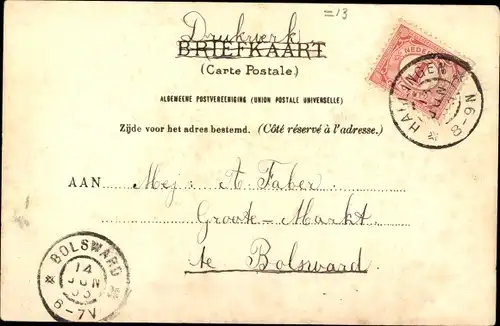 =13
Drukwerk
BRIEFKAART
(Carte Postale.)
ALGEMEENE POSTVEREENIGING (UNION POSTALE UNIVERSELLE)
Zijde voor het adres bestemd. (Côté réservé à l'adresse.)
AAN Mej: A. Faber
Groote-Markt
te Bolsward.
NEDER
HARLINGEN
JUN
8-9N
BOLSWARD
14
JUN
6-7V